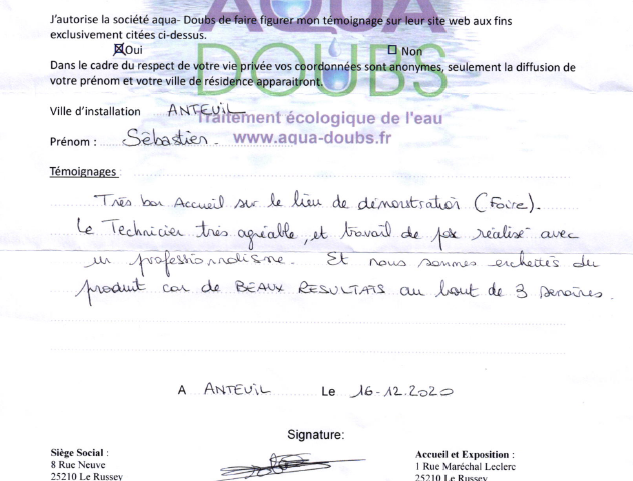 AQUA
DOUBS
J'autorise la société aqua- Doubs de faire figurer mon témoignage sur leur site web aux fins
exclusivement citées ci-dessus.
Oui Non
Dans le cadre du respect de votre vie privée vos coordonnées sont anonymes, seulement la diffusion de
votre prénom et votre ville de résidence apparaitront.
Ville d'installation ANTEUIL
Traitement écologique de l'eau
Prénom : Sébastien.
www.aqua-doubs.fr
Témoignages :
Très bon Accueil sur le lieu de démonstration (Foire).
Le Technicien très agréable, et travail de pose réalisé avec
un professionnalisme. Et nous sommes enchettés du
produit car de BEAUX RESULTATS au bout de 3 semaines.
A ANTEUIL Le 16-12.2020
Signature:
Siège Social :
8 Rue Neuve
25210 Le Russey
Accueil et Exposition :
1 Rue Maréchal Leclerc
25210 Le Russey